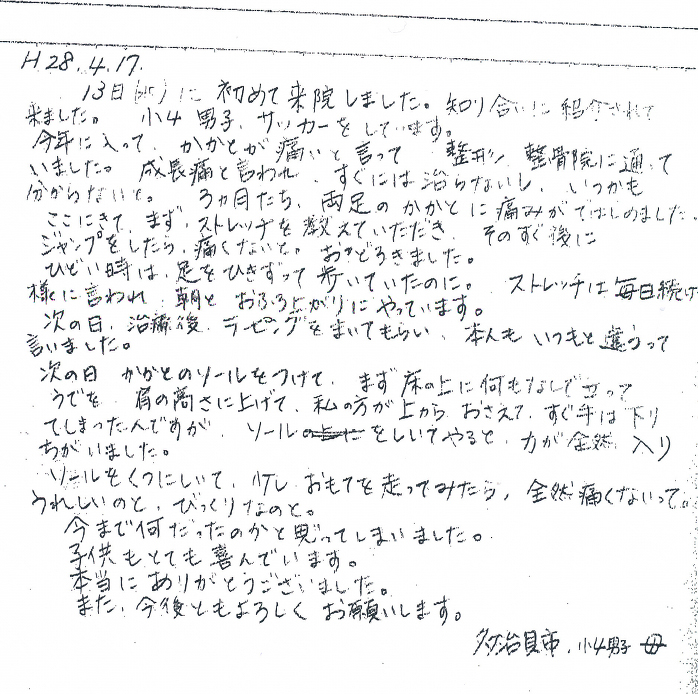 H28.4.17.
13日(水)に 初めて来院しました。知り合いに紹介されて
来ました。 小4 男子、サッカーをしています。
今年に入って、かかとが痛いと言って 整形、整骨院に通って
いました。成長痛と言われ、すぐには治らないし、いつかも
分からないと。 3ヵ月たち、両足のかかとに痛みがではじめました。
ここにきて、まず、ストレッチを教えていただき、そのすぐ後に
ジャンプをしたら、痛くないと。おどろきました。
ひどい時は、足をひきずって歩いていたのに。 ストレッチは毎日続け
様に言われ、朝と おふろ上がりにやっています。
次の日、治療後、テーピングをまいてもらい、本人も いつもと違うって
言いました。
次の日 かかとのソールをつけて、まず床の上に何もなしで立って
うでを 肩の高さに上げて、私の方が上から おさえて、すぐ手は下り
てしまったんですが、ソールをしいてやると、力が全然 入り
ちがいました。
ソールをくつにしいて、少し おもてを走ってみたら、全然痛くないって。
うれしいのと、びっくりなのと。
今まで何だったのかと思ってしまいました。
子供もとても喜んでいます。
本当にありがとうございました。
また、今後ともよろしく お願いします。
多治見市、小4男子 母